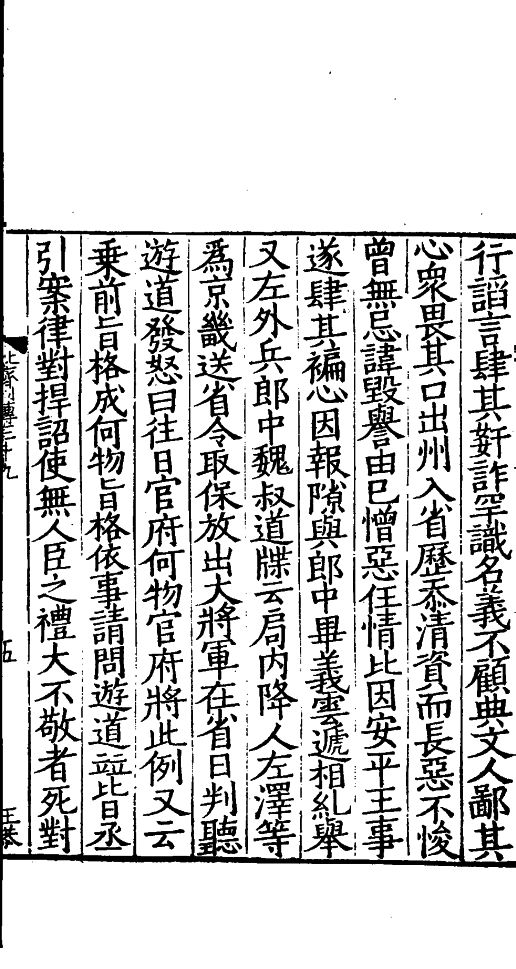 行諂言肆其姧詐罕識名義不顧典文人鄙其
心衆畏其口出州入省歷忝清資而長惡不悛
曾無忌諱毀譽由已憎惡任情比因安平王事
遂肆其褊心因報隙與郎中畢義雲遞相糺舉
又左外兵郎中魏叔道牒云局内降人左澤等
爲京畿送省令取保放出大將軍在省日判聽
遊道發怒曰往日官府何物官府將此例又云
乗前旨格成何物旨格依事請問遊道竝皆承
引案律對捍詔使無人臣之禮大不敬者死對
北齊列傳三十九
五
王恭